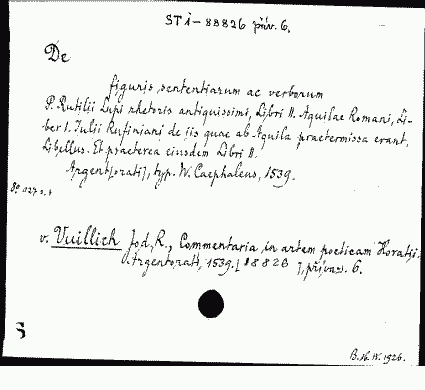 ST i-88826 přív. 6.
De
figuris sententiarum ac verborum
P. Rutilii Lupi rhetoris antiquissimi, Libri II. Aquilae Romani, Li-
ber I. Iulii Rufiniani de iis quae ab Aquila praetermissa erant,
Libellus. Et praeterea eiusdem Libri II.
Argent[orati], typ. W. Caephaleus, 1539.
8º 127 s. +
v. Vuillich Jod. R., Commentaria in artem poeticam Horatii.
Argentorati, 1539. [88826], přívaz. 6.
S
IV. 1926.